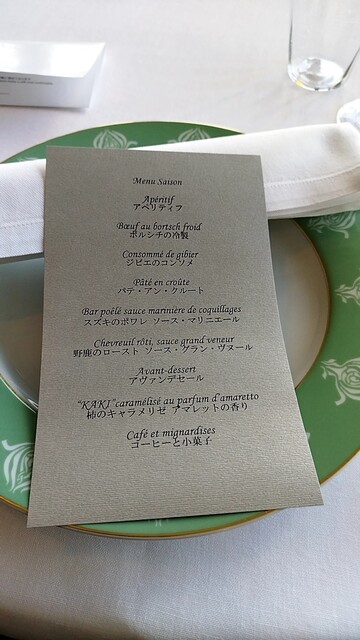 Menu Saison
Apéritif
アペリティフ
Bœuf au bortsch froid
ボルシチの冷製
Consommé de gibier
ジビエのコンソメ
Pâté en croûte
パテ・アン・クルート
Bar poêlé sauce marinière de coquillages
スズキのポワレ ソース・マリニエール
Chevreuil rôti, sauce grand veneur
野鹿のロースト ソース・グラン・ヴヌール
Avant-dessert
アヴァンデセール
"KAKI" caramélisé au parfum d'amaretto
柿のキャラメリゼ アマレットの香り
Café et mignardises
コーヒーと小菓子